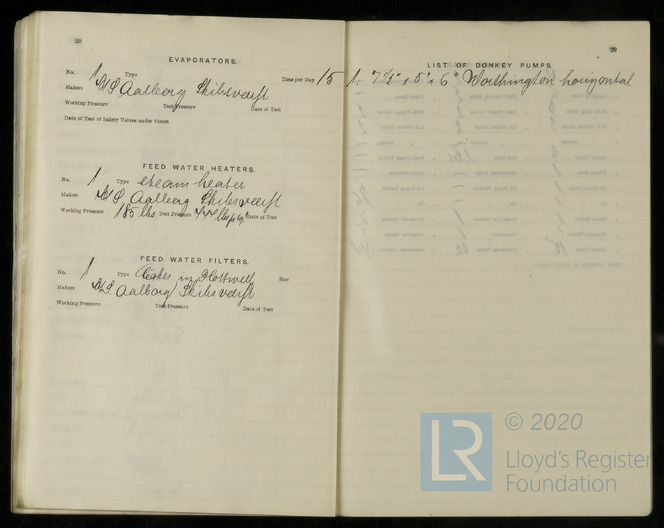 28
EVAPORATORS.
No. 1 Type Tons per Day 15
Makers A/S Aalborg Skibsværft
Working Pressure Test Pressure Date of Test
Date of Test of Safety Valves under Steam
FEED WATER HEATERS.
No. 1 Type steam heater
Makers A/S Aalborg Skibsværft
Working Pressure 185 lbs. Test Pressure Date of Test
FEED WATER FILTERS.
No. 1 Type in Hottwell Size
Makers A/S. Aalborg Skibsværft
Working Pressure Test Pressure Date of Test
29
LIST OF DONKEY PUMPS.
1. 7½" x 5" x 6" Worthington horizontal
© 2020
LR
Lloyd's Register
Foundation